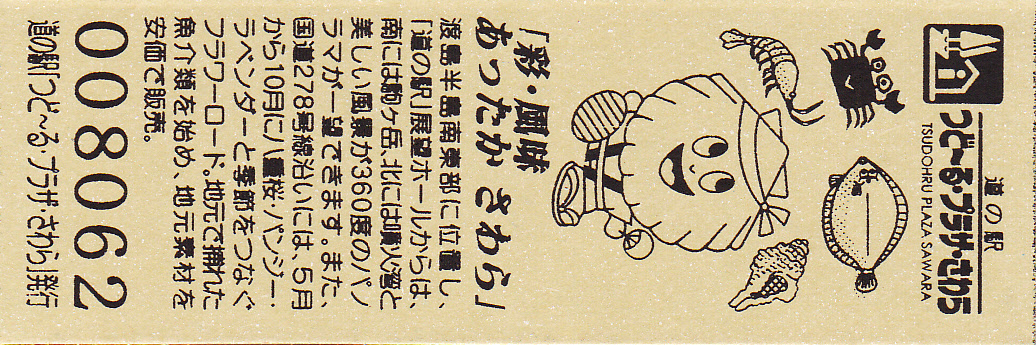 道の駅
つど〜る・プラザ・さわら
TSUDOHRU PLAZA SAWARA
「彩・風味
あったか さわら」
渡島半島南東部に位置し、
「道の駅」展望ホールからは、
南には駒ヶ岳、北には噴火湾と
美しい風景が360度のパノ
ラマが一望できます。また、
国道278号線沿いには、5月
から10月に八重桜・パンジー・
ラベンダーと季節をつなぐ
フラワーロード。地元で捕れた
魚介類を始め、地元素材を
安価で販売。
008062
道の駅「つど〜る・プラザ・さわら」発行